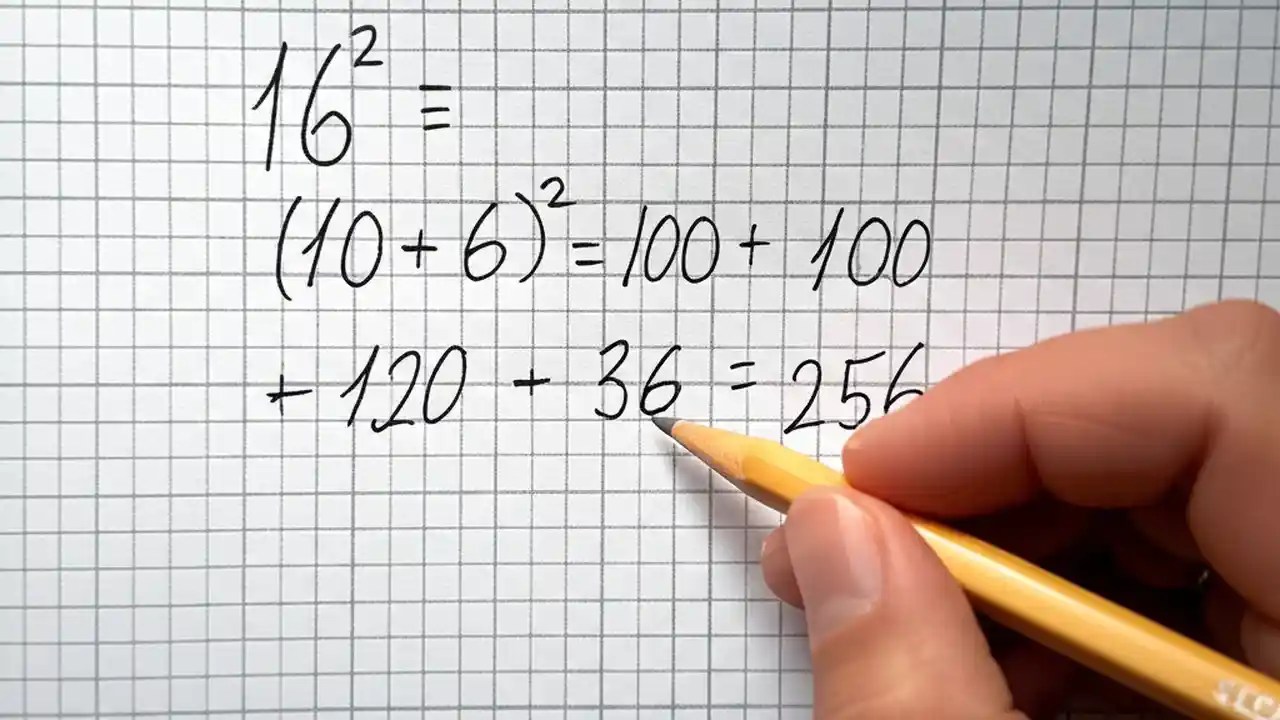 16² ≡
(10 + 6)² = 100 + 100
+ 120 + 36 = 256